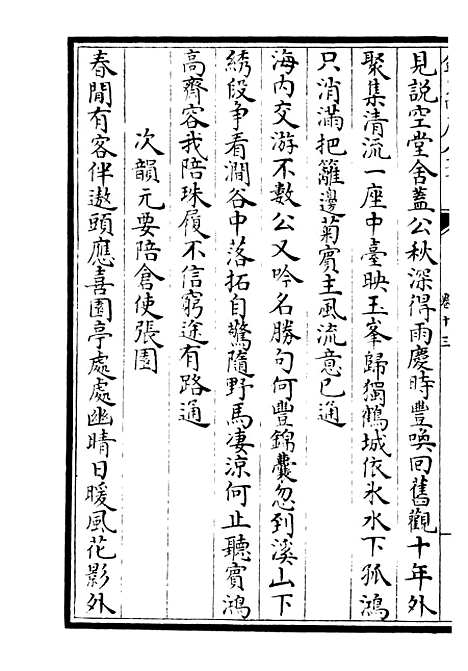 見說空堂舍蓋公秋深得雨慶時豐喚回舊觀十年外
聚集清流一座中臺映玉峯歸獨鶴城依氷水下孤鴻
只消滿把籬邊菊賓主風流意已通
海内交游不數公又吟名勝句何豐錦囊忽到溪山下
綉段争看澗谷中落拓自驚隨野馬凄涼何止聽賓鴻
高齋容我陪珠履不信窮途有路通
次韻元要陪倉使張園
春閒有客伴遨頭應喜園亭處處幽晴日暖風花影外
卷十三